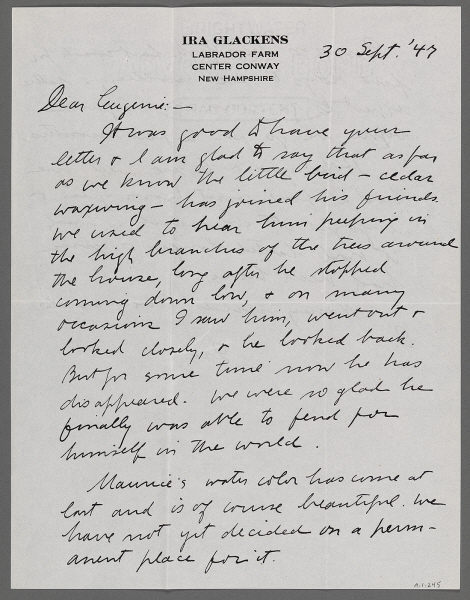 IRA GLACKENS
LABRADOR FARM
CENTER CONWAY
NEW HAMPSHIRE
30 Sept. '47
Dear Eugenie:—
It was good to have your
letter & I am glad to say that as far
as we know the little bird – cedar
waxwing – has joined his friends.
We used to hear him peeping in
the high branches of the trees around
the house, long after he stopped
coming down low, & on many
occasions I saw him, went out &
looked closely, & he looked back.
But for some time now he has
disappeared. We were so glad he
finally was able to fend for
himself in the world.
Maurice's water color has come at
last and is of course beautiful. We
have not yet decided on a perm-
anent place for it.
A.1.245